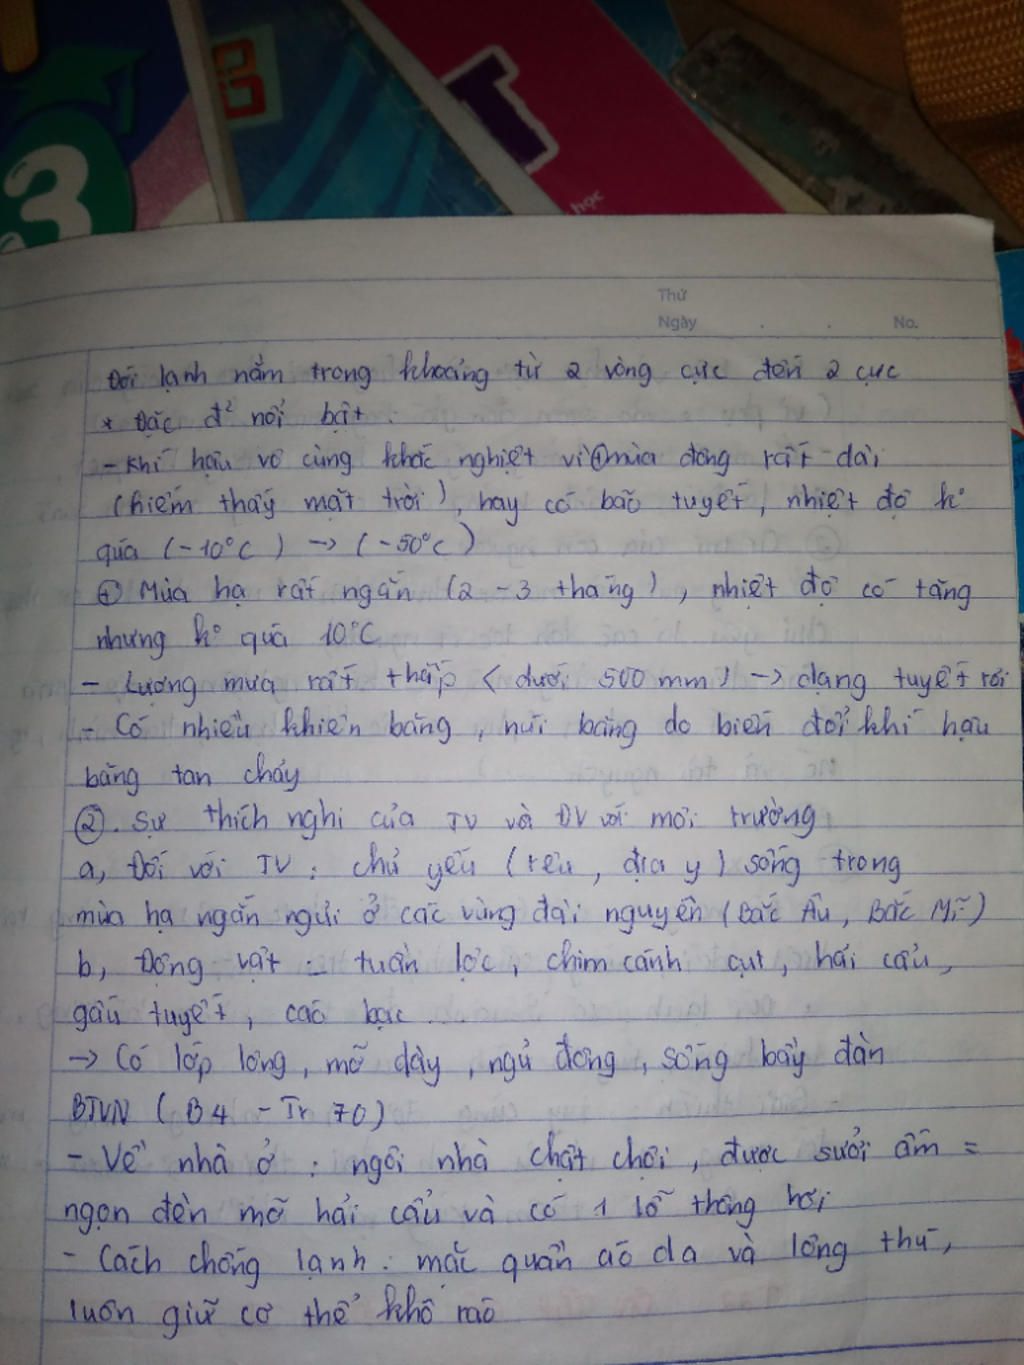 3
B
học
Thứ
Ngày . . No.
Đới lạnh nằm trong khoảng từ 2 vòng cực đến 2 cực
* Đặc đ² nổi bật :
- Khí hậu vô cùng khắc nghiệt vì ⊕ mùa đông rất dài
(hiếm thấy mặt trời), hay có bão tuyết, nhiệt độ k°
qúa (-10°C) → (-50°C)
⊕ Mùa hạ rất ngắn (2 - 3 tháng), nhiệt độ có tăng
nhưng k° qúa 10°C
- Lượng mưa rất thấp (dưới 500 mm) → dạng tuyết rơi
- Có nhiều khiên băng, núi băng do biến đổi khí hậu
băng tan chảy
②. Sự thích nghi của TV và ĐV với môi trường
a, Đối với TV : chủ yếu (rêu, địa y) sống trong
mùa hạ ngắn ngủi ở các vùng đài nguyên (Bắc Âu, Bắc Mĩ)
b, Động vật : tuần lộc, chim cánh cụt, hải cẩu,
gấu tuyết, cáo bạc ...
→ Có lớp lông, mỡ dày, ngủ đông, sống bầy đàn
BTVN (B4 - Tr 70)
- Về nhà ở : ngôi nhà chật chội, được sưởi ấm =
ngọn đèn mỡ hải cẩu và có 1 lỗ thông hơi
- Cách chống lạnh : mặc quần áo da và lông thú,
luôn giữ cơ thể khô ráo